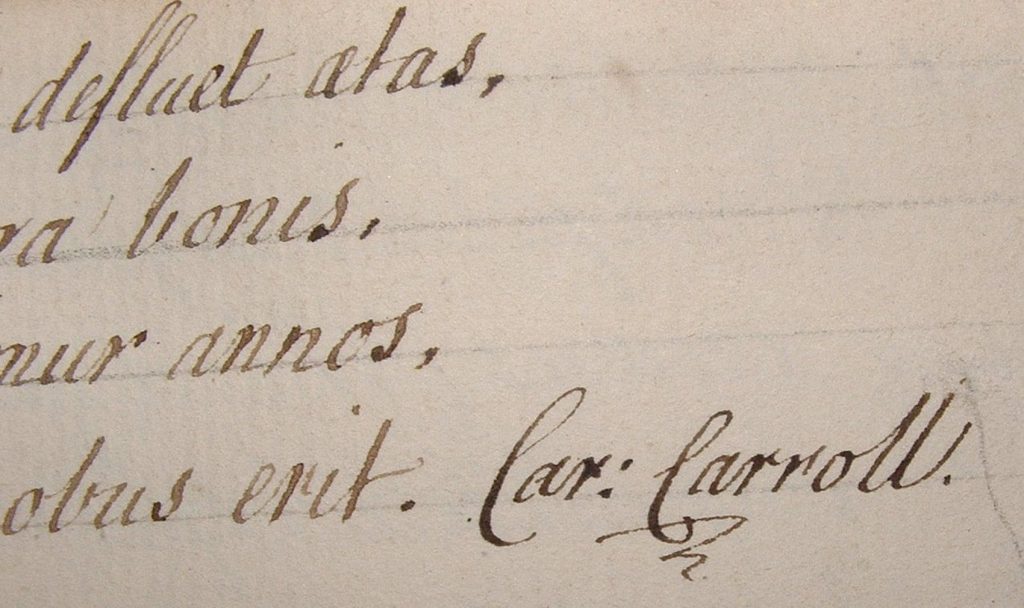 defluet ætas,
ra bonis.
mur annos,
obus erit. Car: Carroll.